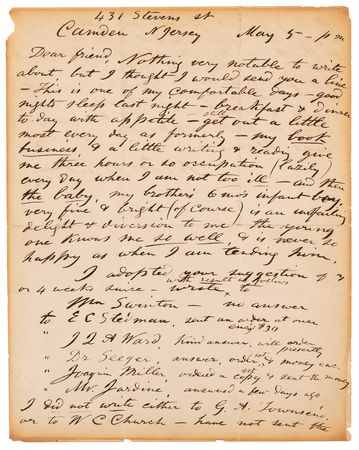 431 Stevens st
Camden N Jersey May 5 - p m
Dear friend, Nothing very notable to write
about, but I thought I would send you a line
- This is one of my comfortable days - good
nights sleep last night - breakfast & dinner
to day with appetite - get out a little still
most every day as formerly - my book
business & a little writing & reading give
me three hours or so occupation (lazily)
every day when I am not too ill - and then
the baby, my brother's 6 mos infant boy,
very fine & bright (of course) is an unfailing
delight & diversion to me - the young
one knows me so well & is never so
happy as when I am tending him.
I adopted your suggestion of 3
or 4 weeks since - wrote with result as follows to
Wm Swinton - no answer
to E C Stedman, sent an order at once encg $30
" J Q A Ward, kind answer, will order presently
" Dr Seeger, answer, ordered set & money enc.
" Joaquin Miller ordered set & sent the money
" Mr. Jardine answered a few days ago
I did not write either to G. A. Townsend
or to W C Church - have not sent the